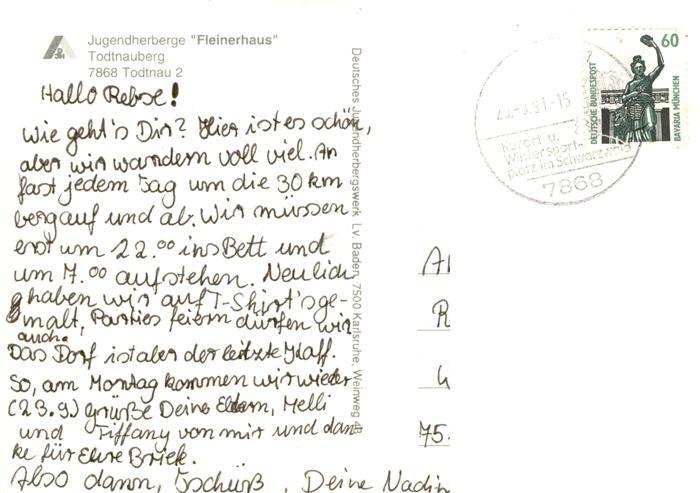 Jugendherberge "Fleinerhaus"
Todtnauberg
7868 Todtnau 2
Hallo Rebse!
wie geht's Dir? Hier ist es schön,
aber wir wandern voll viel. An
fast jedem Tag um die 30 km
bergauf und ab. Wir müssen
erst um 22.00 ins Bett und
um 7.00 aufstehen. Neulich
haben wir auf T-Shirt's ge-
malt, Parties feiern dürfen wir
auch.
Das Dorf ist aber der letzte Kaff.
So, am Montag kommen wir wieder
(23.9.) grüße Deine Eltern, Melli
und Tiffany von mir und dan-
ke für Eure Briefe.
Also dann, Tschüß, Deine Nadin
Deutsches Jugendherbergswerk Lv. Baden, 7500 Karlsruhe, Weinweg 43
60
DEUTSCHE BUNDESPOST
BAVARIA MÜNCHEN
91-15
Kurort u.
Wintersport-
platz im Schwarzwald
7868
A
R
75.